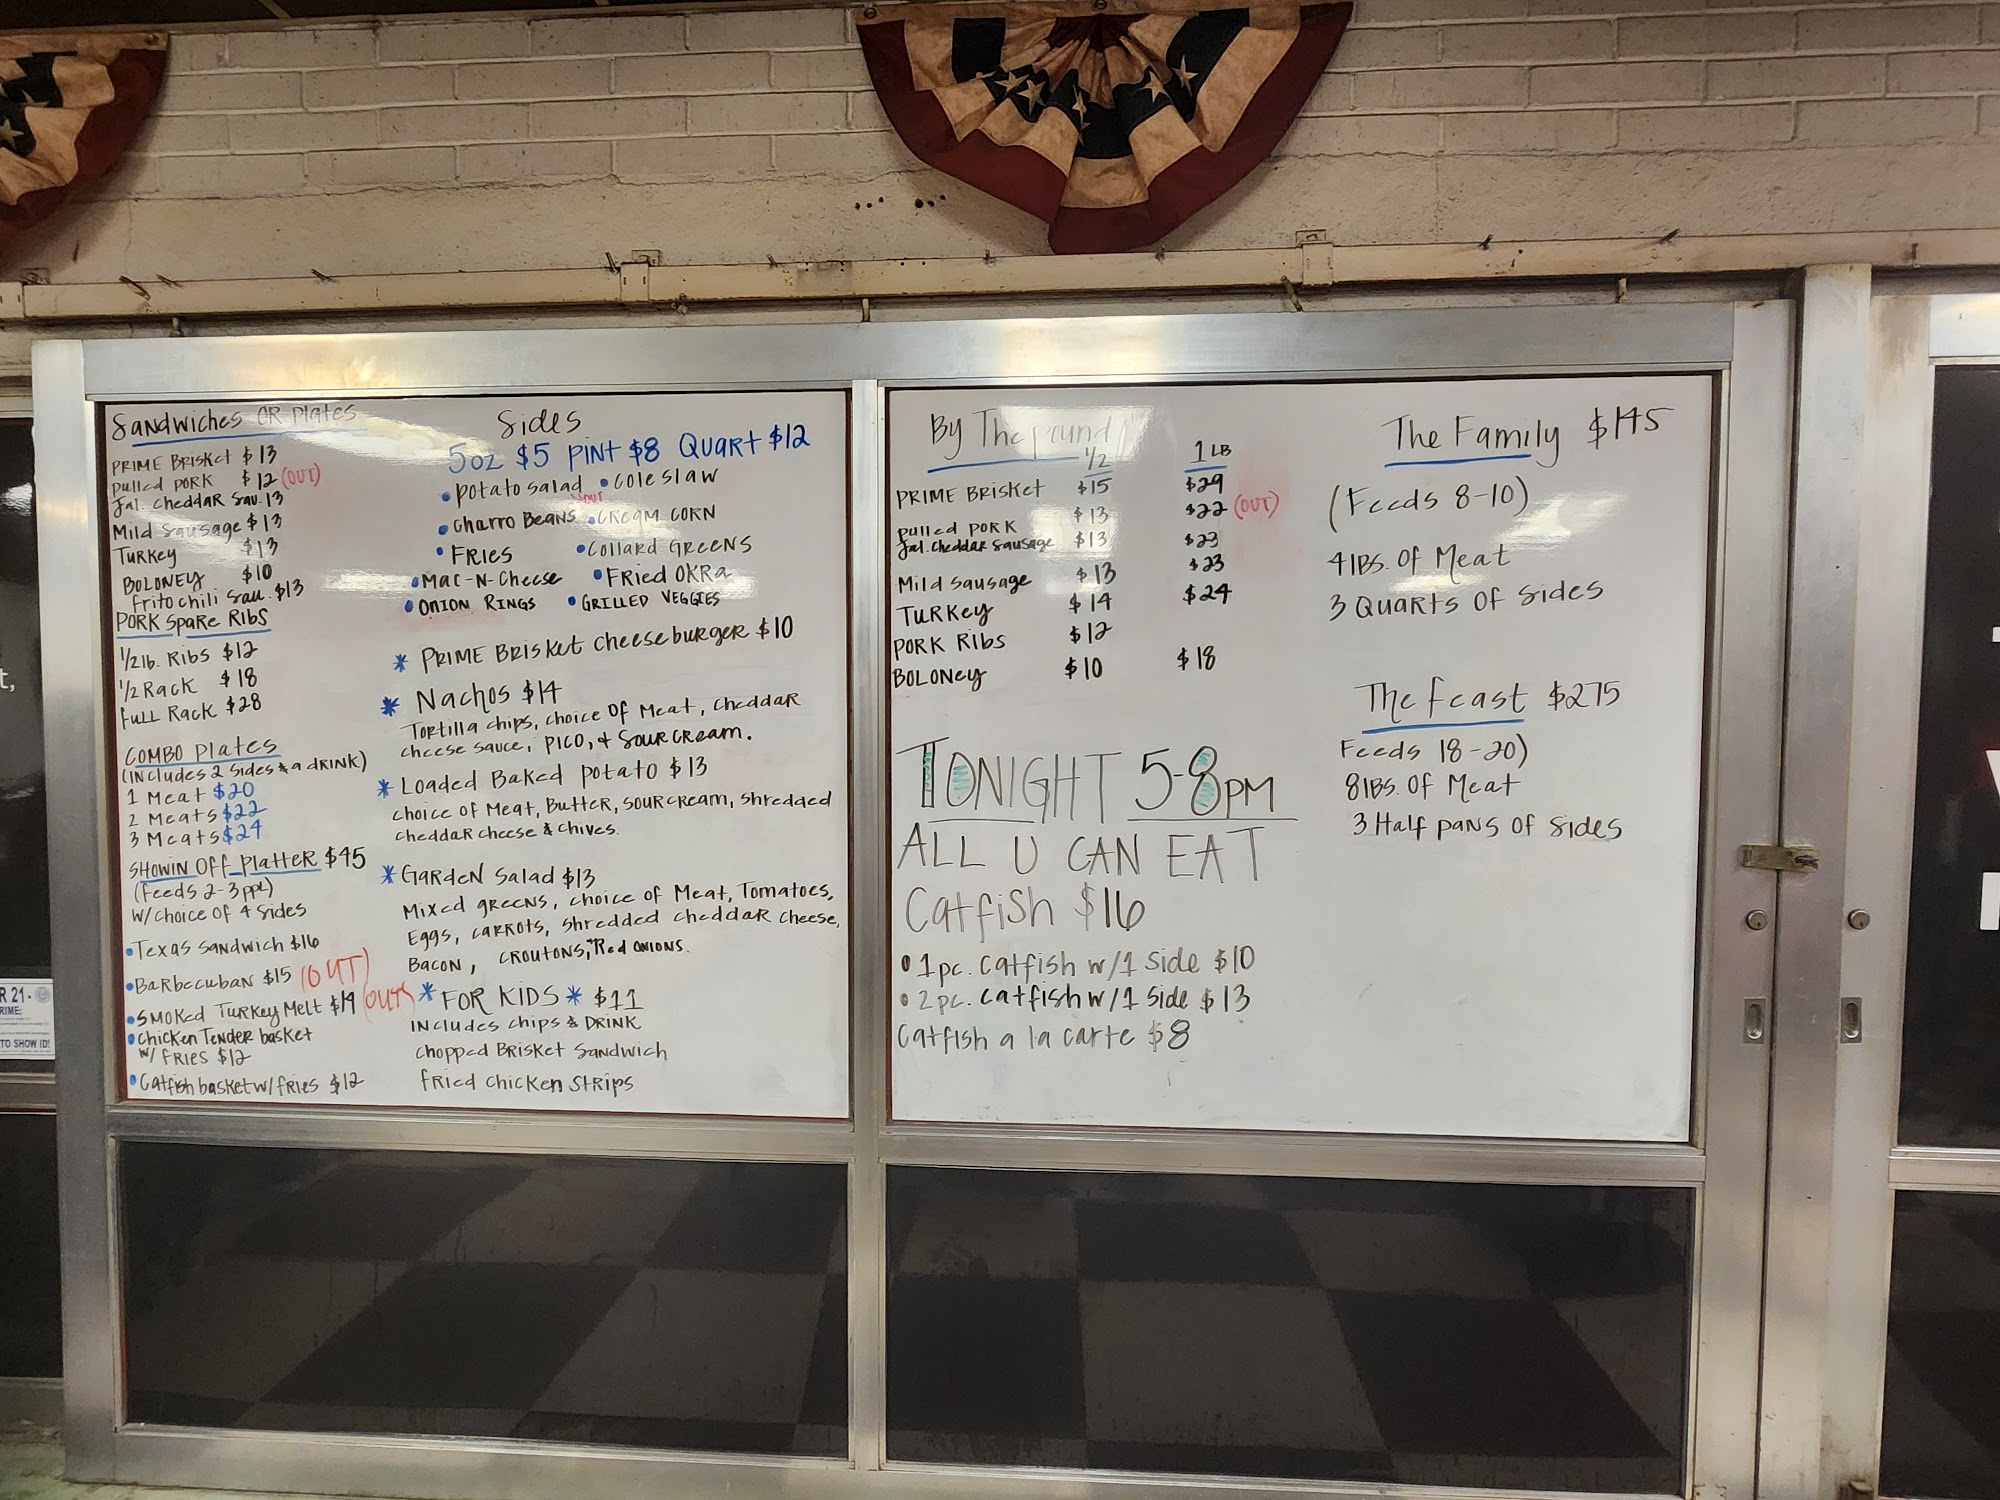 Sandwiches OR Plates
PRIME BRISKET $13
Pulled PORK $12 (OUT)
Jal. Cheddar Sau. 13
Mild Sausage $13
Turkey $13
BOLONEY $10
Frito chili Sau. $13
PORK Spare Ribs
1/2 lb. Ribs $12
1/2 Rack $18
Full Rack $28
COMBO Plates
(INCLUDES 2 Sides & a DRINK)
1 Meat $20
2 Meats $22
3 Meats $24
SHOWIN OFF PLATTER $45
(Feeds 2-3 ppl)
W/choice OF 4 Sides
Texas Sandwich $16
Barbecuban $15 (OUT)
SMOKED TURKEY MELT $14 (OUT)
Chicken Tender basket
W/ FRIES $12
Catfish basket w/fries $12
Sides
5oz $5 PINT $8 QUART $12
Potato Salad
Cole Slaw
Charro Beans
CREAM CORN
FRIES
Collard GREENS
Mac-N-Cheese
Fried OKRa
ONION RINGS
GRILLED VEGGIES
* PRIME BRISKET Cheeseburger $10
* Nachos $14
Tortilla chips, choice OF Meat, cheddar
cheese sauce, PICO, + SOUR CREAM.
* Loaded Baked Potato $13
choice of Meat, Butter, sour cream, shredded
cheddar cheese & chives.
* GARDEN Salad $13
Mixed greens, choice of Meat, Tomatoes,
Eggs, carrots, shredded cheddar cheese,
BACON, CROUTONS, + Red ONIONS.
* FOR KIDS * $11
INCLUDES chips & DRINK
chopped BRISKET Sandwich
fried chicken STRIPS
By The Pound
1/2 1 LB
PRIME BRISKET $15 $29
Pulled PORK $13 $22 (OUT)
Jal. Cheddar Sausage $13 $23
Mild Sausage $13 $23
TURKEY $14 $24
PORK RIBS $12
BOLONEY $10 $18
TONIGHT 5-8PM
ALL U CAN EAT
Catfish $16
1 pc. catfish w/1 side $10
2 pc. catfish w/1 side $13
Catfish a la carte $8
The Family $145
(Feeds 8-10)
4 lbs. Of Meat
3 Quarts Of Sides
The Feast $275
Feeds 18-20)
8 lbs. Of Meat
3 Half pans Of Sides
R 21.
TO SHOW ID!